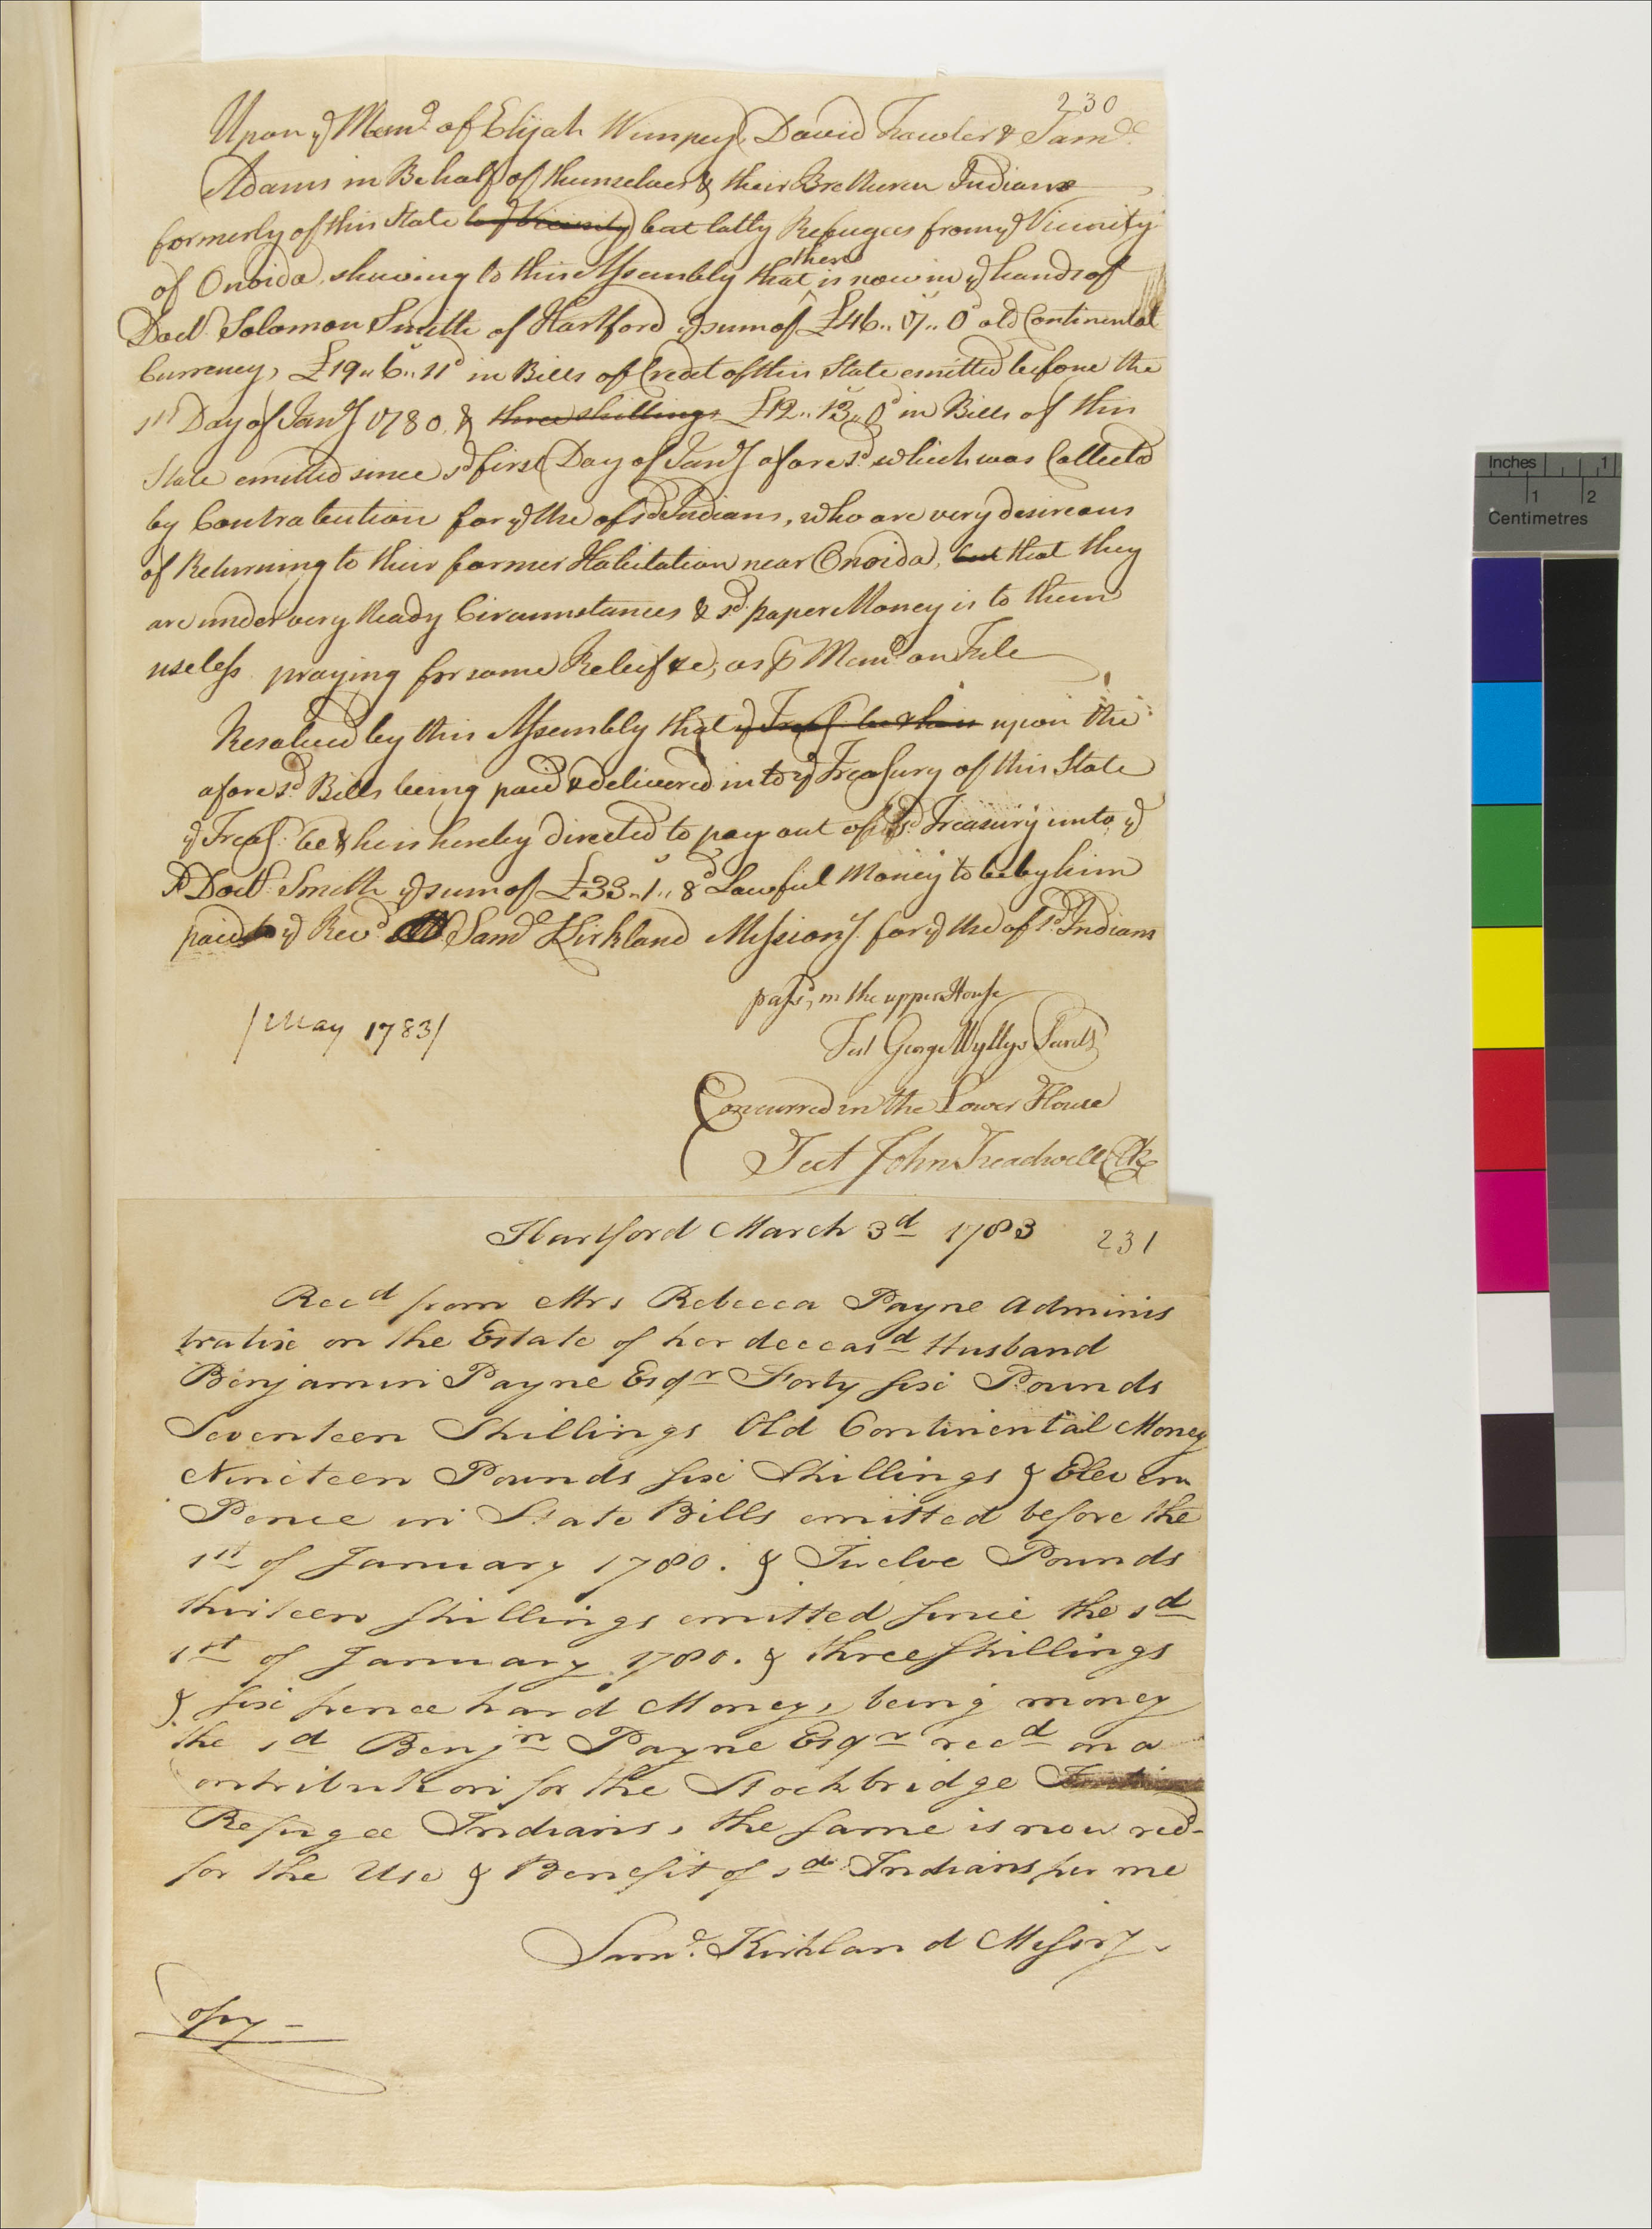 230
Upon ye Meml. of Elijah Wimpey, David Fowler & Saml.
Adams in Behalf of themselves & their Bretheren Indians
formerly of this State but latly Refugees from ye Vicinity
of Onoida, shewing to this Assembly that there is now in ye hands of
Doctr. Solomon Smith of Hartford ye sum of £46.. 17.. 0d old Continental
Currency, £19.. 6s.. 11d in Bills of Credit of this State emitted before the
1st Day of Jany 1780, & three shillings £12.. 13s.. 0d in Bills of this
State emitted since sd first Day of Jany aforesd. which was Collected
by Contrabution for ye Use of sd Indians, who are very desireous
of Returning to their former Habitation near Onoida, but that they
are under very Neady Circumstances & sd. paper Money is to them
useless praying for some Releif &c, as pr Meml. on File
Resolved by this Assembly that ye Treasr. be & he is upon the
aforesd. Bills being paid & delivered into ye Treasury of this State
ye Treasr. be & he is hereby directed to pay out of sd. Treasury unto ye
sd Doctr. Smith ye sum of £33.. 1s.. 8d Lawful Money to be by him
paid to ye Revd. Saml Kirkland Missiony. for ye Use of sd. Indians
passd, in the upper House
/May 1783/
Test George Wyllys Secrety
Concurred in the Lower House
Test John Treadwell Clk
Hartford March 3d 1783
231
Recd from Mrs Rebecca Payne Adminis
tratix on the Estate of her deceasd Husband
Benjamin Payne Esqr Forty six Pounds
Seventeen Shillings Old Continental Money
Nineteen Pounds six Shillings & Eleven
Pence in State Bills emitted before the
1st of January 1780. & Twelve Pounds
thirteen shillings emitted since the sd
1st of January 1780. & three shillings
& six pence hard Money, being money
the sd Benjn Payne Esqr recd on a
Contribution for the Stockbridge
Refugee Indians, the same is now recd-
for the Use & Benefit of sd Indians, per me
Saml. Kirkland Missiony.
Copy -
Inches 1
1 2
Centimetres